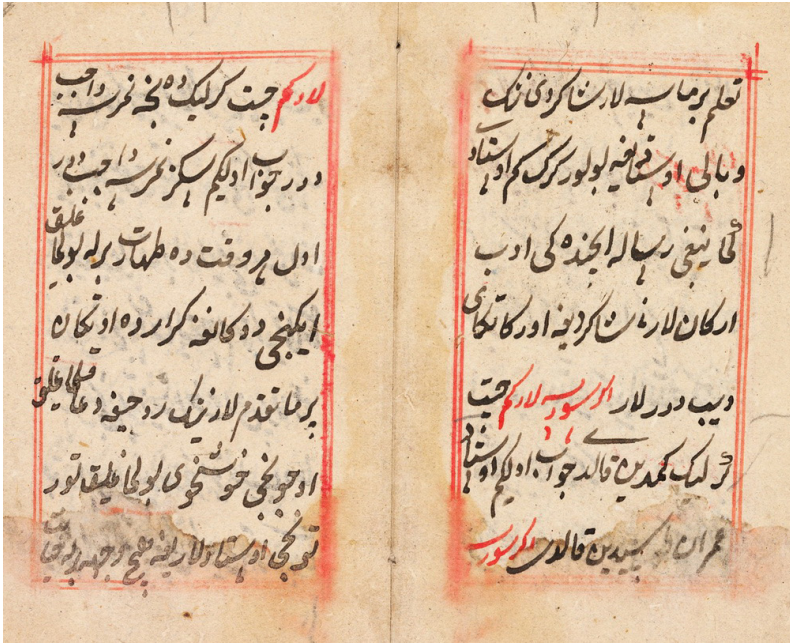 تعلم برماسه لار شاکردی نینک
وبالی اوستاذیغه بولور کرک کم اوستاد
رساله ایچنده کی ادب
ارکان لارنی شاگردیغه اورکاتکای
دیب دورلار اکر سورسه لارکم چیت
کرلیک کمدین قالدی جواب اولکیم اوستاد
عمران قالدی اکر سورسه
لارکم چیت کرلیک ده نجه نمرسه واجب
دور جواب اولکیم سکز نمرسه واجب دور
اول هر وقت ده طهارت برله بولماغلیق
ایکنجی دوکانغه کرارده اوتکان
پر ماتقدم لارنینک روحیغه دعا قیلماغلیق
اوچونجی خوشخوی بولماغلیق تور
تورتنجی اوستادلاریغه